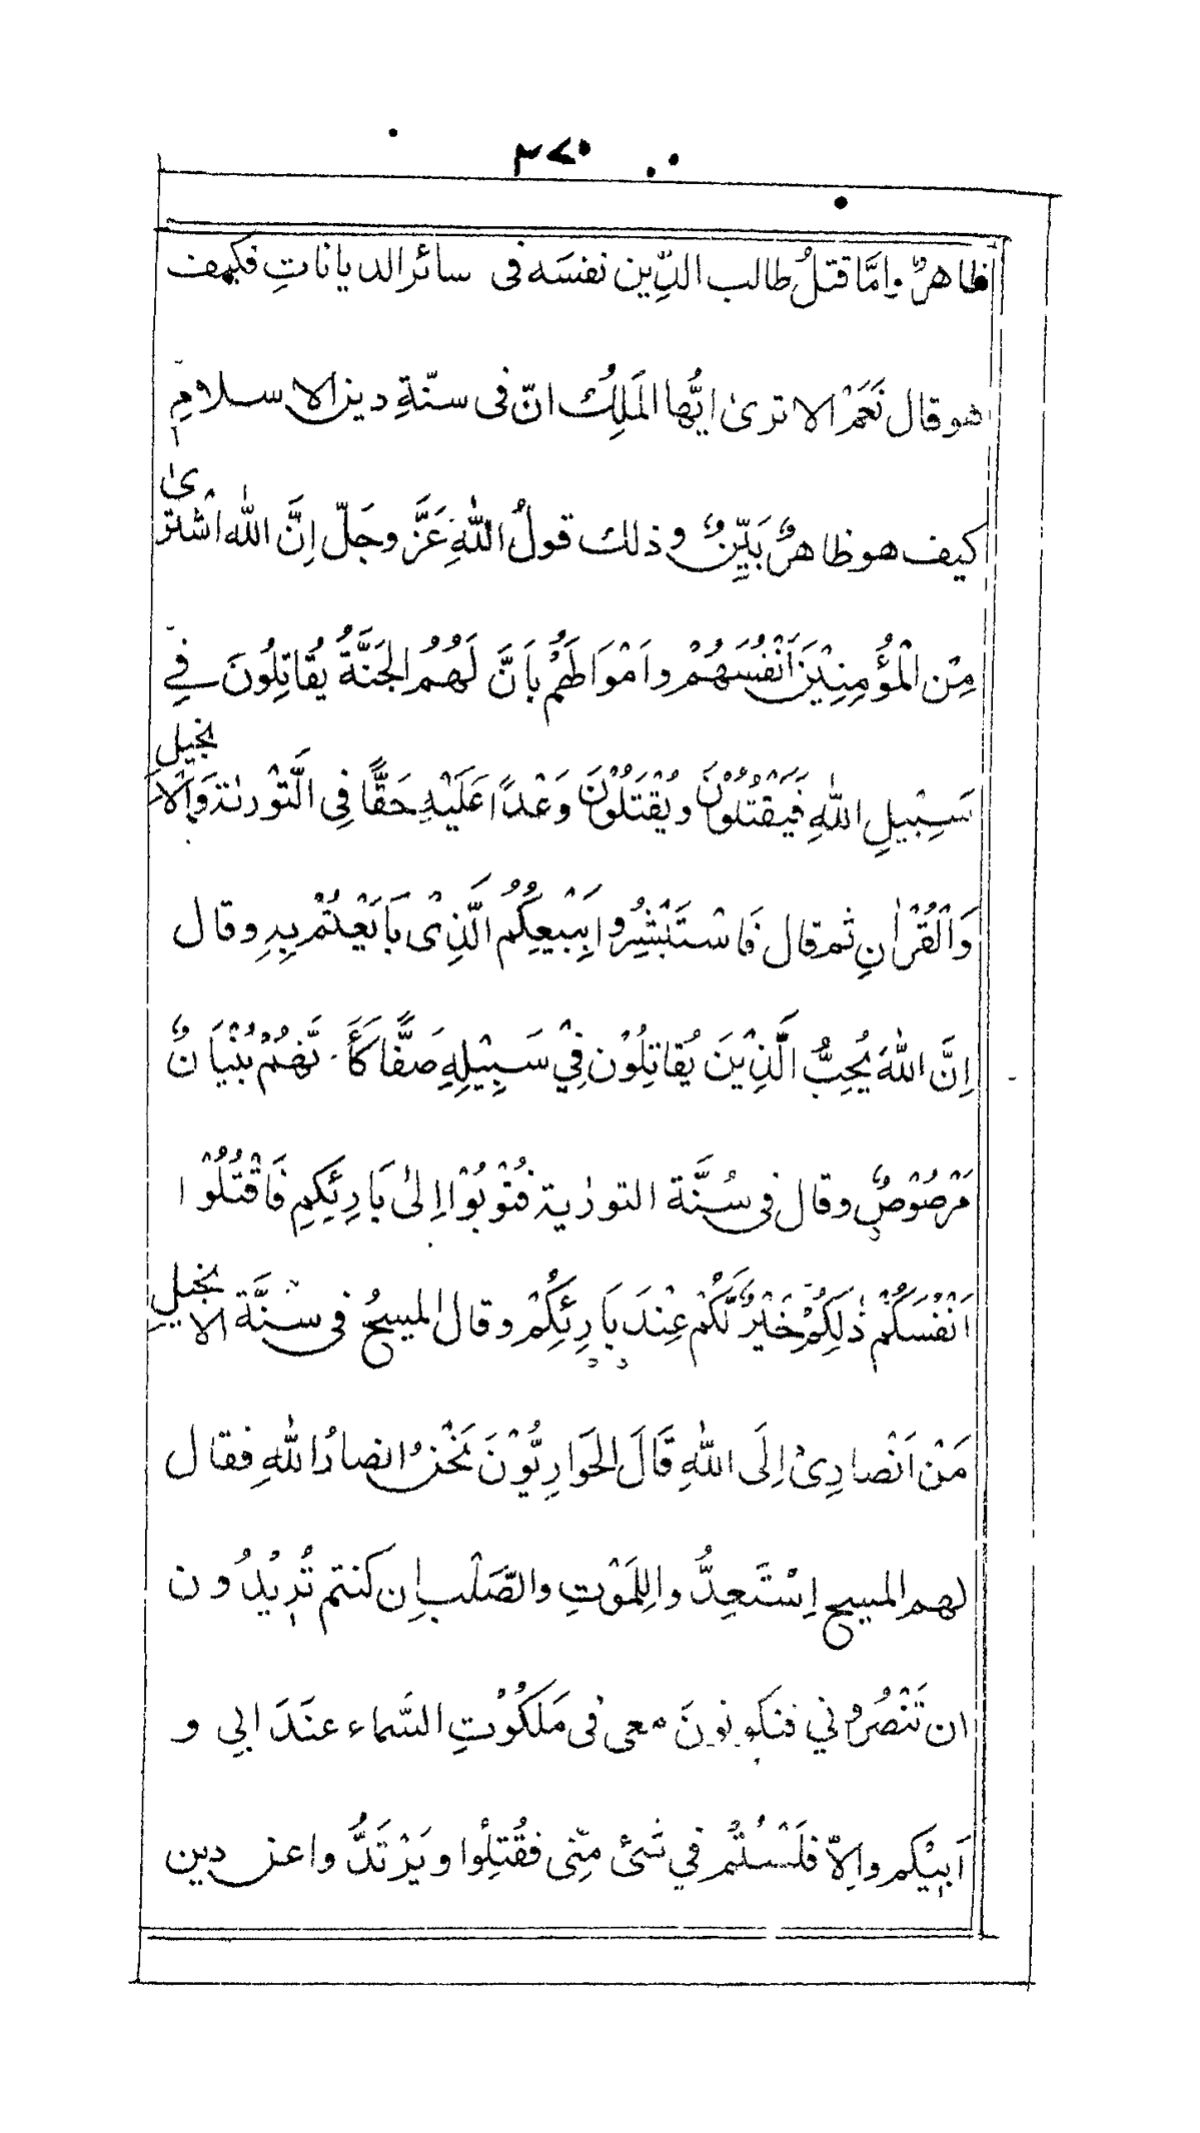 ٣٧٠
ظاهرٌ وامَّا قتلُ طالب الدِّين نفسَه فى سائر الديانات فكيف
هو قال نَعَمْ الا ترىٰ ايُّها المَلِكُ انّ فى سنّةِ دين الاسلامِ
كيف هو ظاهرٌ بَيِّنٌ وذلك قولُ اللّٰهِ عَزَّ وجَلّ اِنَّ اللّٰه اشْتَرىٰ
مِنْ الْمُؤْمِنِيْنَ اَنْفُسَهُمْ واَمْوَالَهُمْ بِاَنَّ لَهُمُ الْجَنَّةُ يُقَاتِلُونَ فِى
سَبِيْلِ اللّٰهِ فَيَقْتُلُوْنَ ويُقْتَلُوْنَ وَعْدًا عَلَيْهِ حَقًّا فِى التَّوْرٰىةِ وَالْاِنجيلِ
وَالْقُرْاٰنِ ثم قال فَاسْتَبْشِرُوا بِبَيْعِكُمُ الَّذِىْ بَايَعْتُمْ بِهِ وقال
اِنَّ اللّٰهَ يُحِبُّ الَّذِيْنَ يُقاتِلُوْن فِيْ سَبِيْلِهِ صَفًّا كَأَنَّهُمْ بُنْيَانٌ
مَرْصُوْصٌ وقال فى سُنَّة التورٰية فتُوْبُوْا اِلىٰ بَارِئِكِمِ فَاقْتُلُوْا
اَنْفُسَكُمْ ذٰلِكُمْ خَيْرٌ لَّكُمْ عِنْدَ بَارِئِكُمْ وقال المسيحُ فى سنَّة الانجيلِ
مَنْ اَنْصارِىْ اِلَى اللّٰهِ قَالَ الحَوَارِيُّوْنَ نَحْنُ انصارُ اللّٰهِ فقال
لهم المسيح اِسْتَعِدُّوا لِلمَوْتِ والصَّلْب اِن كنتم تُرِيْدُون
ان تَنْصُرُوني فتكونونَ معى فى مَلَكُوْتِ السَّماء عندَ ابى و
اَبِيْكم واِلاّ فلَسْتُمْ في شَىْءٍ مِّنى فقُتِلُوا ويَرْتَدُّوا عن دين